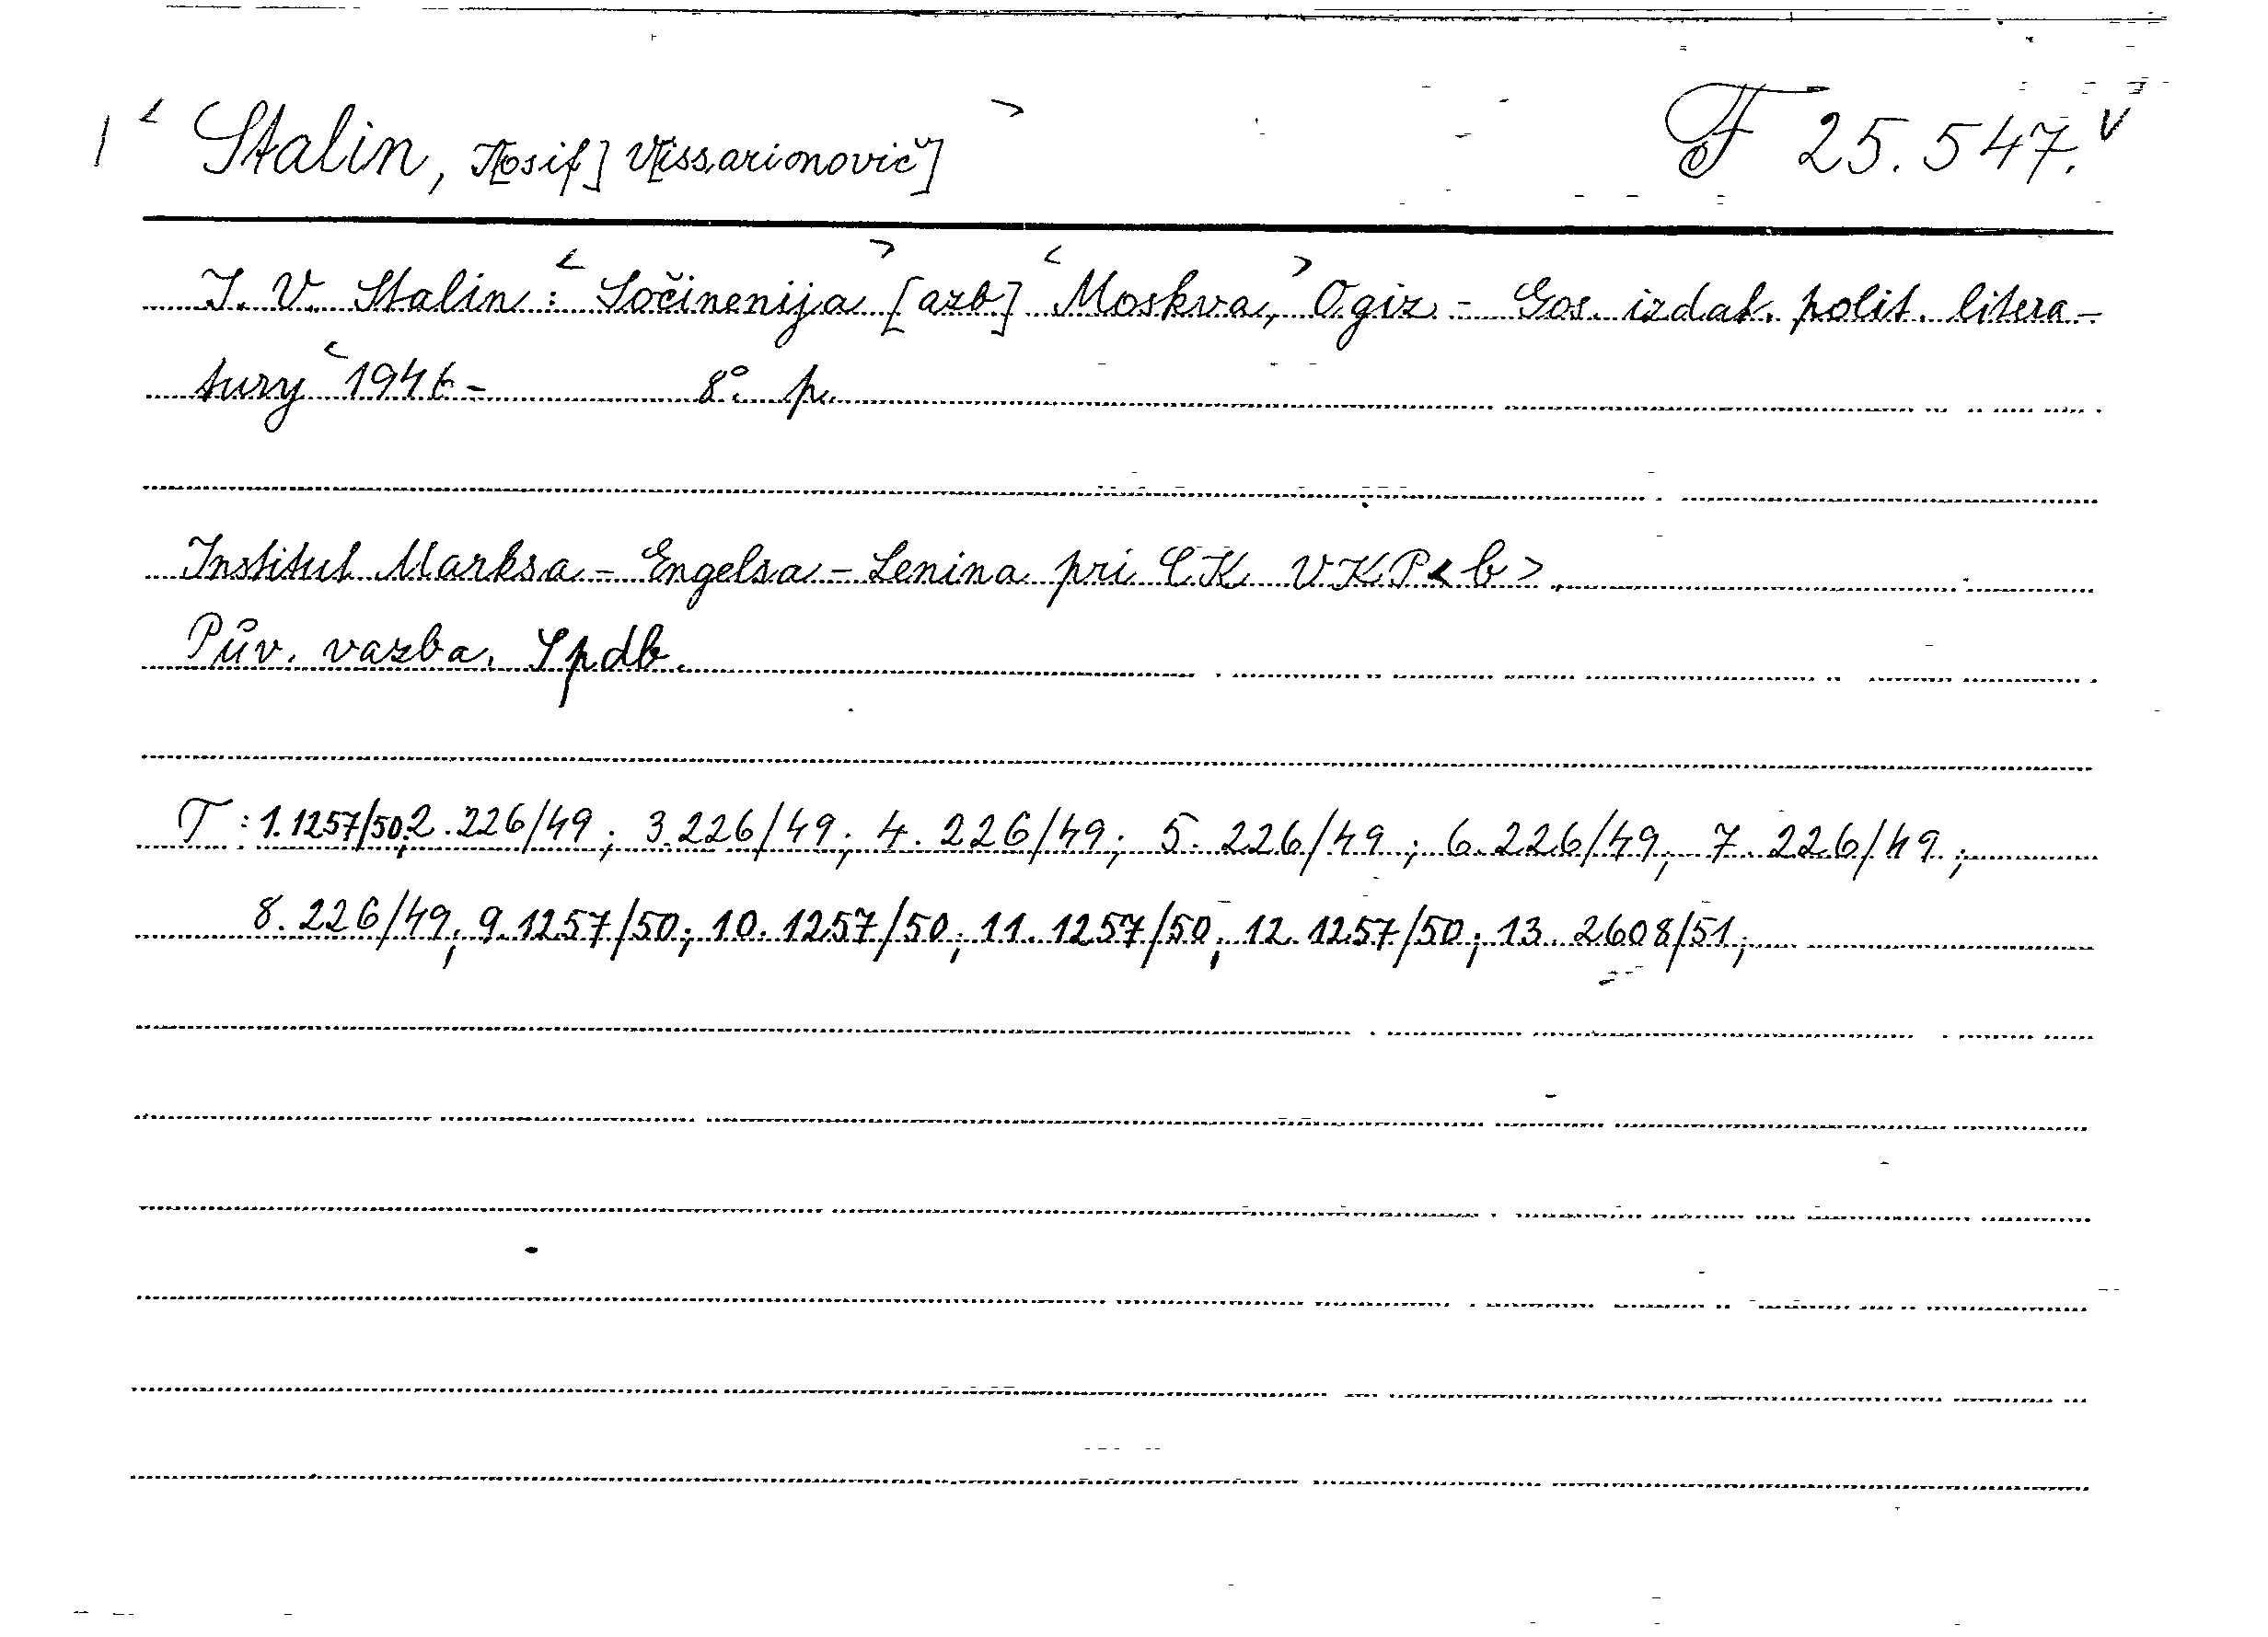 Stalin, J[osif] V[issarionovič] F 25.547.
J. V. Stalin: Sočinenija [azb] Moskva, Ogiz - Gos. izdat. polit. litera-
tury 1946- 8°. p.
Institut Marksa - Engelsa - Lenina pri CK VKP<b>.
Pův. vazba. Spdb.
T: 1. 1257/50; 2. 226/49; 3. 226/49; 4. 226/49; 5. 226/49; 6. 226/49; 7. 226/49;
8. 226/49; 9. 1257/50; 10. 1257/50; 11. 1257/50; 12. 1257/50; 13. 2608/51;